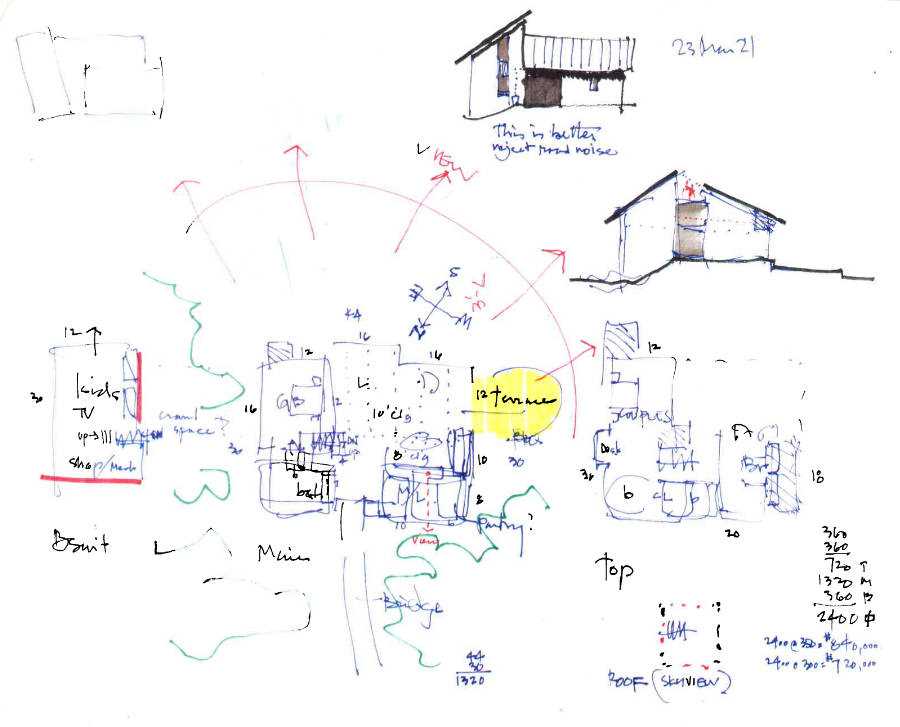 23 Mar 21
This is better
reject road noise
VIEW
S
N
W
K4
12
16
16
12
12
30
kids
TV
up
crawl
space?
shop/Mech
16
GB
L
D
10' clg
12 terrace
10
30
30
8' clg
bath
M
L
8
10
6
Pantry?
view
COUPLES
Desk
30
b
CL
b
Br
18
20
Bsmt
Main
Top
Bridge
360
360
720 T
1320 M
360 B
2400 ф
2400 @ 350 = $840,000
2400 @ 300 = $720,000
44
30
1320
ROOF (SKYVIEW)